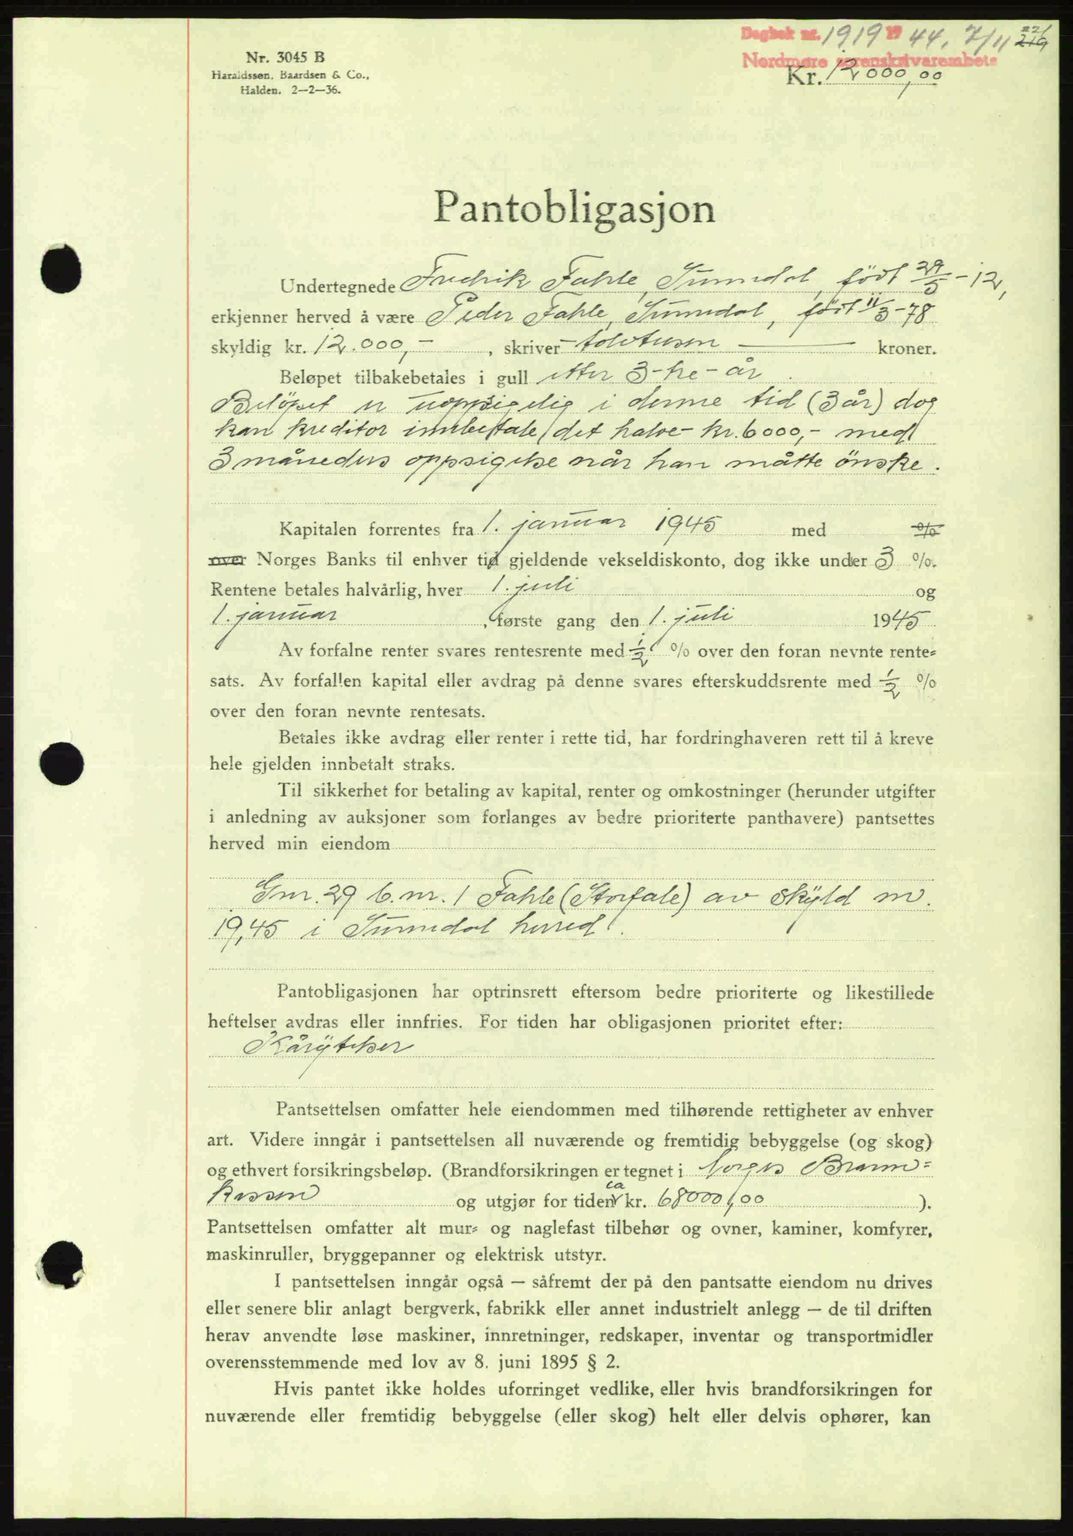 Nr. 3045 B
Haraldssen, Baardsen & Co.,
Halden. 2—2—36.
Dagbok nr. 1919 19 44. 7/11 221 219
Nordmøre sorenskriverembete
Kr. 12000,00
Pantobligasjon
Undertegnede Fredrik Fahle, Sunndal, født 29/5-12,
erkjenner herved å være Peder Fahle, Sunndal, født 11/3-78
skyldig kr. 12.000,- , skriver tolvtusen kroner.
Beløpet tilbakebetales i gull etter 3-tre-år.
Beløpet er uoppsigelig i denne tid (3 år) dog
kan kreditor innbetale det halve kr. 6000,- med
3 måneders oppsigelse når han måtte ønske.
Kapitalen forrentes fra 1. januar 1945 med %
over Norges Banks til enhver tid gjeldende vekseldiskonto, dog ikke under 3 %.
Rentene betales halvårlig, hver 1. juli og
1. januar , første gang den 1. juli 1945
Av forfalne renter svares rentesrente med ½ % over den foran nevnte rente-
sats. Av forfallen kapital eller avdrag på denne svares efterskuddsrente med ½ %
over den foran nevnte rentesats.
Betales ikke avdrag eller renter i rette tid, har fordringhaveren rett til å kreve
hele gjelden innbetalt straks.
Til sikkerhet for betaling av kapital, renter og omkostninger (herunder utgifter
i anledning av auksjoner som forlanges av bedre prioriterte panthavere) pantsettes
herved min eiendom
Gnr. 29 b.nr. 1 Fahle (Storfale) av skyld m.
19,45 i Sunndal herred.
Pantobligasjonen har optrinsrett eftersom bedre prioriterte og likestillede
heftelser avdras eller innfries. For tiden har obligasjonen prioritet efter:
Kårytelser
Pantsettelsen omfatter hele eiendommen med tilhørende rettigheter av enhver
art. Videre inngår i pantsettelsen all nuværende og fremtidig bebyggelse (og skog)
og ethvert forsikringsbeløp. (Brandforsikringen er tegnet i Norges Brann-
kassen og utgjør for tiden ca kr. 68000,00 ).
Pantsettelsen omfatter alt mur- og naglefast tilbehør og ovner, kaminer, komfyrer,
maskinruller, bryggepanner og elektrisk utstyr.
I pantsettelsen inngår også — såfremt der på den pantsatte eiendom nu drives
eller senere blir anlagt bergverk, fabrikk eller annet industrielt anlegg — de til driften
herav anvendte løse maskiner, innretninger, redskaper, inventar og transportmidler
overensstemmende med lov av 8. juni 1895 § 2.
Hvis pantet ikke holdes uforringet vedlike, eller hvis brandforsikringen for
nuværende eller fremtidig bebyggelse (eller skog) helt eller delvis ophører, kan